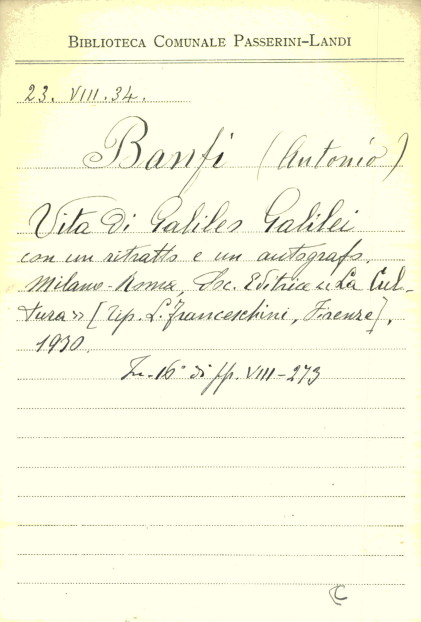 BIBLIOTECA COMUNALE PASSERINI-LANDI
23. VIII. 34.
Banfi (Antonio)
Vita di Galileo Galilei
con un ritratto e un autografo.
Milano-Roma, Soc. Editrice «La Cul-
tura» [Tip. L. Franceschini, Firenze],
1930.
In-16° di pp. VIII-273
C